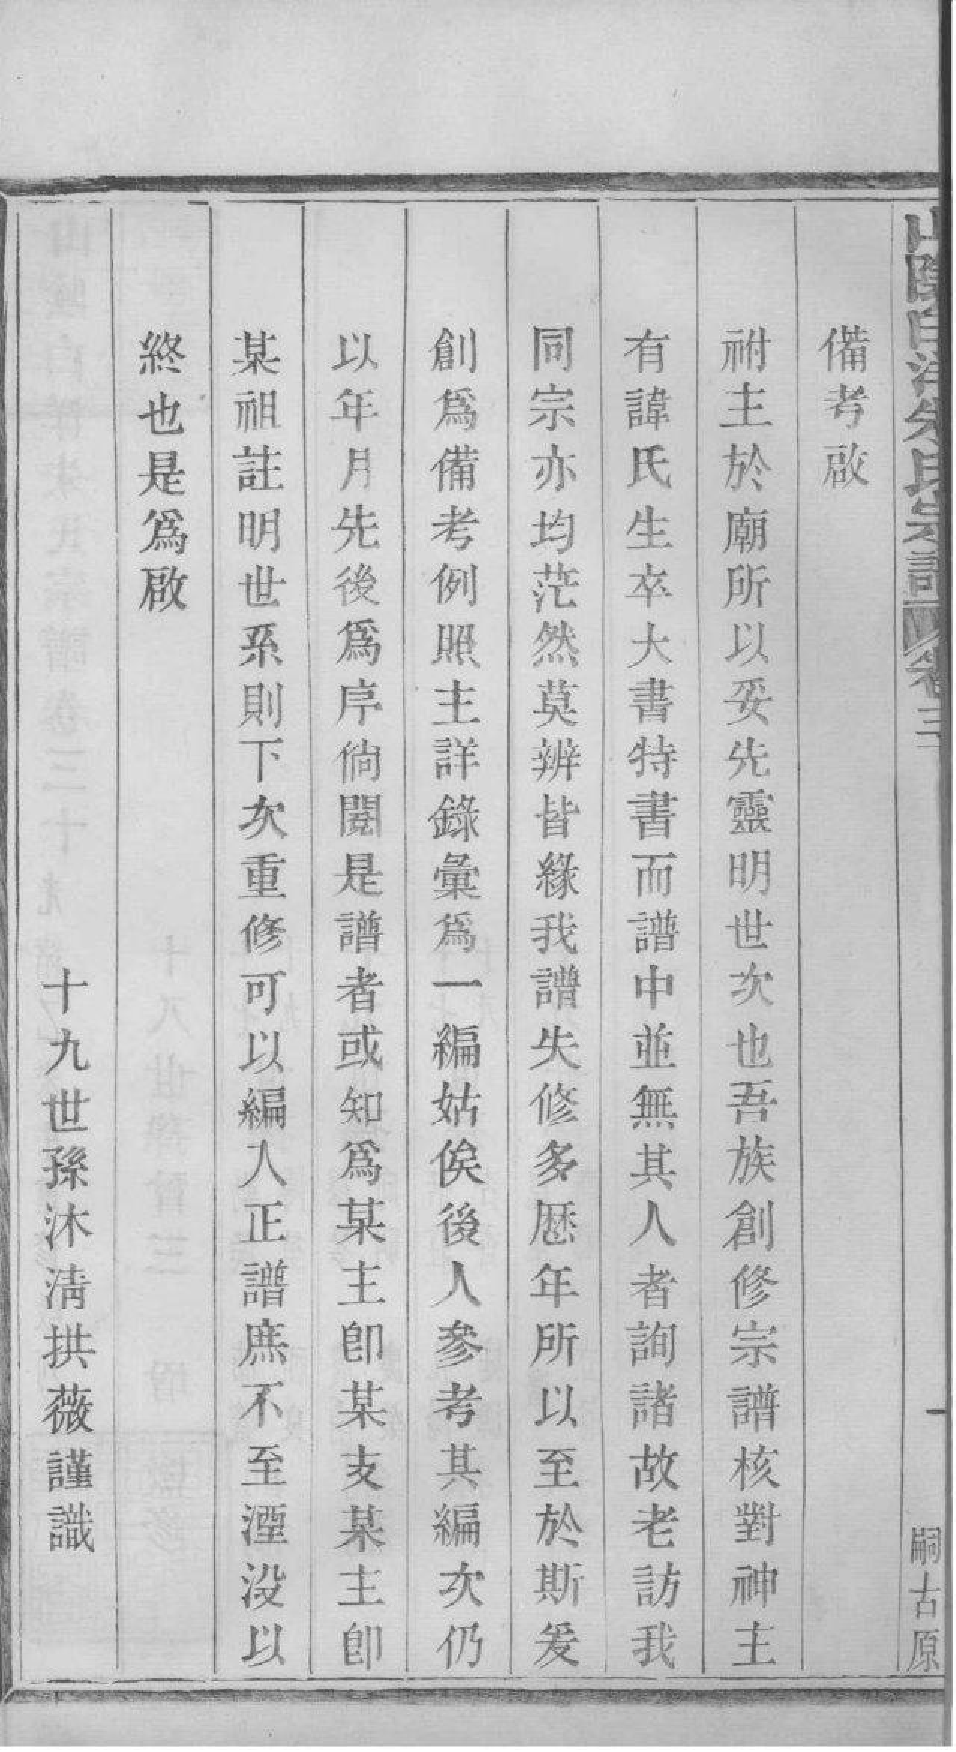 山陰白洋朱氏宗譜 卷三
一
嗣古原
備考啟
祔主於廟所以妥先靈明世次也吾族創修宗譜核對神主
有諱氏生卒大書特書而譜中並無其人者詢諸故老訪我
同宗亦均茫然莫辨皆緣我譜失修多歷年所以至於斯爰
創爲備考例照主詳錄彙爲一編姑俟後人參考其編次仍
以年月先後爲序倘閱是譜者或知爲某主卽某支某主卽
某祖註明世系則下次重修可以編入正譜庶不至湮没以
終也是爲啟
十九世孫沐清拱薇謹識